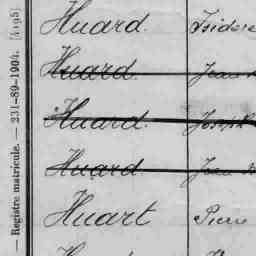 Huard. Isidore
Huard. Jean
Huard. Joseph
Huard Jean
Huart Pierre
— Registre matricule. — 231-89-1904. [4195]